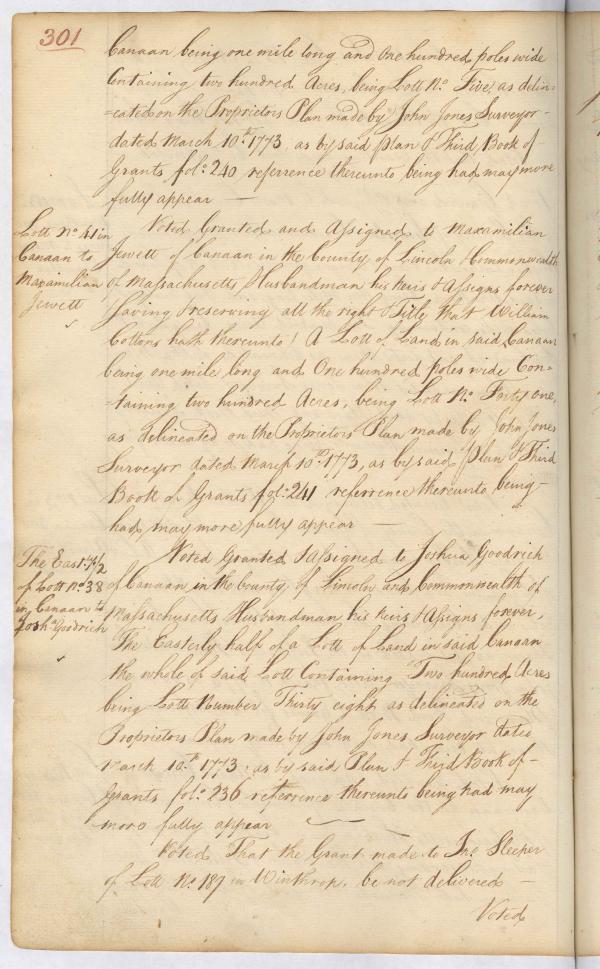 301
Canaan being one mile long and One hundred poles wide
Containing two hundred Acres, being Lott No. Five, as delin-
=eated on the Proprietors Plan made by John Jones Surveyor -
dated March 10th. 1773, as by said plan & Third Book of
Grants fol.o 240 referrence thereunto being had may more
fully appear —
Lott No. 41 in
Canaan to
Maxamilian
Jewett
Voted Granted and Assigned to Maxamilian
Jewett of Canaan in the County of Lincoln & Commonwealth
of Massachusetts Husbandman his heirs & Assigns forever
Saving & reserving all the right & Title that William
Cottons hath thereunto! A Lott of Land in said Canaan
being one mile long and One hundred poles wide Con-
=taining two hundred Acres, being Lott No. Forty one,
as delineated on the Proprietors Plan made by John Jones
Surveyor dated March 10th. 1773, as by said Plan & Third
Book of Grants fol.o 241 referrence thereunto being -
had may more fully appear —
The East.ly 1/2
of Lott No. 38
in Canaan to
Josh.a Goodrich
Voted Granted & Assigned to Joshua Goodrich
of Canaan in the County of Lincoln and Commonwealth of
Massachusetts Husbandman his heirs & Assigns forever,
The Easterly half of a Lott of Land in said Canaan
the whole of said Lott Containing Two hundred Acres
being Lott Number Thirty eight as delineated on the
Proprietors Plan made by John Jones Surveyor dated
March 10th. 1773, as by said Plan & Third Book of -
Grants fol.o 236 referrence thereunto being had may
more fully appear —
Voted, That the Grant made to Jno. Sleeper
of Lott No. 187 in Winthrop, be not delivered —
Voted